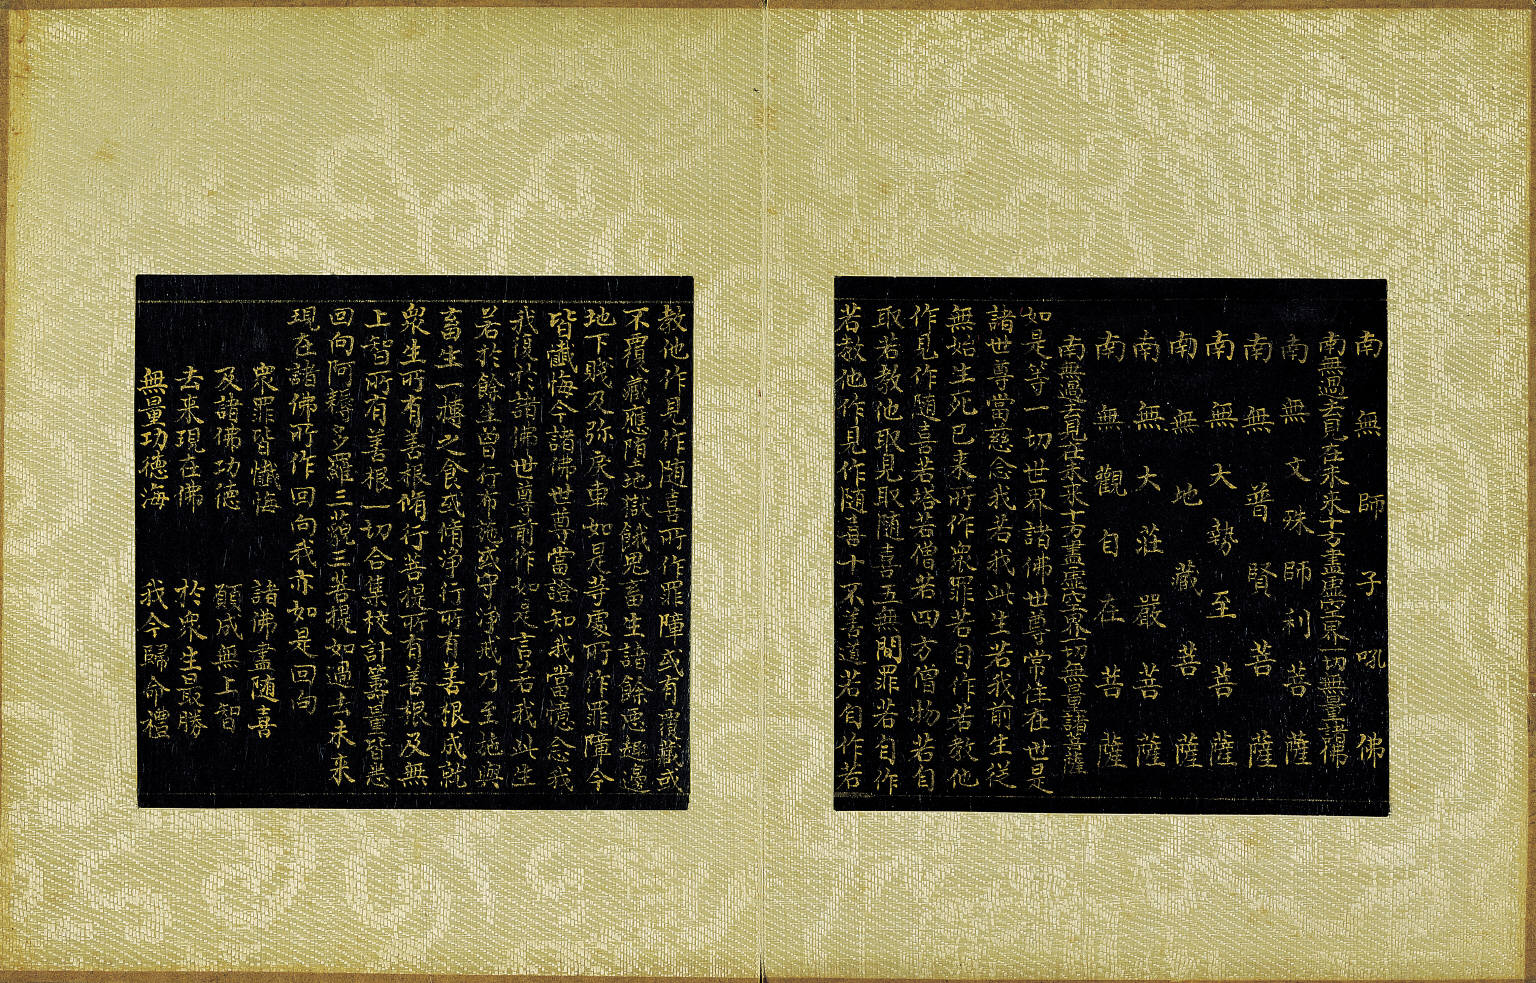 南無師子吼佛
南無過去見在未来十方盡虛空界一切無量諸佛
南無文殊師利菩薩
南無普賢菩薩
南無大勢至菩薩
南無地藏菩薩
南無大莊嚴菩薩
南無觀自在菩薩
南無過去見在未来十方盡虛空界一切無量諸菩薩
如是等一切世界諸佛世尊常住在世是
諸世尊當慈念我若我此生若我前生從
無始生死已来所作衆罪若自作若教他
作見作随喜若塔若僧若四方僧物若自
取若教他取見取随喜五無間罪若自作
若教他作見作随喜十不善道若自作若
教他作見作随喜所作罪障或有覆藏或
不覆藏應堕地獄餓鬼畜生諸餘惡趣邊
地下賤及弥戾車如是等處所作罪障今
皆懺悔今諸佛世尊當證知我當憶念我
我復於諸佛世尊前作如是言若我此生
若於餘生曾行布施或守淨戒乃至施與
畜生一摶之食或脩淨行所有善根成就
衆生所有善根脩行菩提所有善根及無
上智所有善根一切合集校計籌量皆悉
回向阿耨多羅三藐三菩提如過去未来
現在諸佛所作回向我亦如是回向
衆罪皆懺悔　諸佛盡随喜
及諸佛功德　願成無上智
去来現在佛　於衆生最勝
無量功德海　我今歸命禮